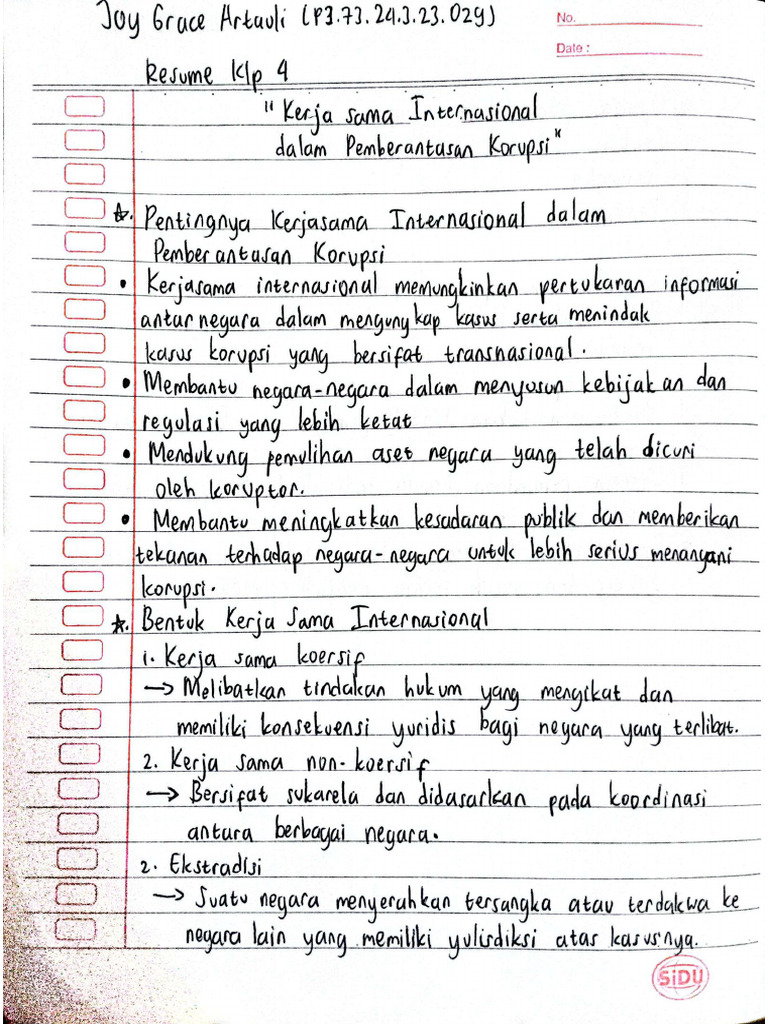 Joy Grace Artauli (P3.73.24.3.23.029)
No.
Date :
Resume Klp 4
"Kerja sama Internasional
dalam Pemberantasan Korupsi"
☆. Pentingnya Kerjasama Internasional dalam
Pemberantasan Korupsi
• Kerjasama internasional memungkinkan pertukaran informasi
antar negara dalam mengungkap kasus serta menindak
kasus korupsi yang bersifat transnasional.
• Membantu negara-negara dalam menyusun kebijakan dan
regulasi yang lebih ketat
• Mendukung pemulihan aset negara yang telah dicuri
oleh koruptor.
• Membantu meningkatkan kesadaran publik dan memberikan
tekanan terhadap negara-negara untuk lebih serius menangani
korupsi.
☆. Bentuk Kerja Sama Internasional
1. Kerja sama koersif
→ Melibatkan tindakan hukum yang mengikat dan
memiliki konsekuensi yuridis bagi negara yang terlibat.
2. Kerja sama non-koersif
→ Bersifat sukarela dan didasarkan pada koordinasi
antara berbagai negara.
2. Ekstradisi
→ Suatu negara menyerahkan tersangka atau terdakwa ke
negara lain yang memiliki yulisdiksi atas kasusnya.
SiDU